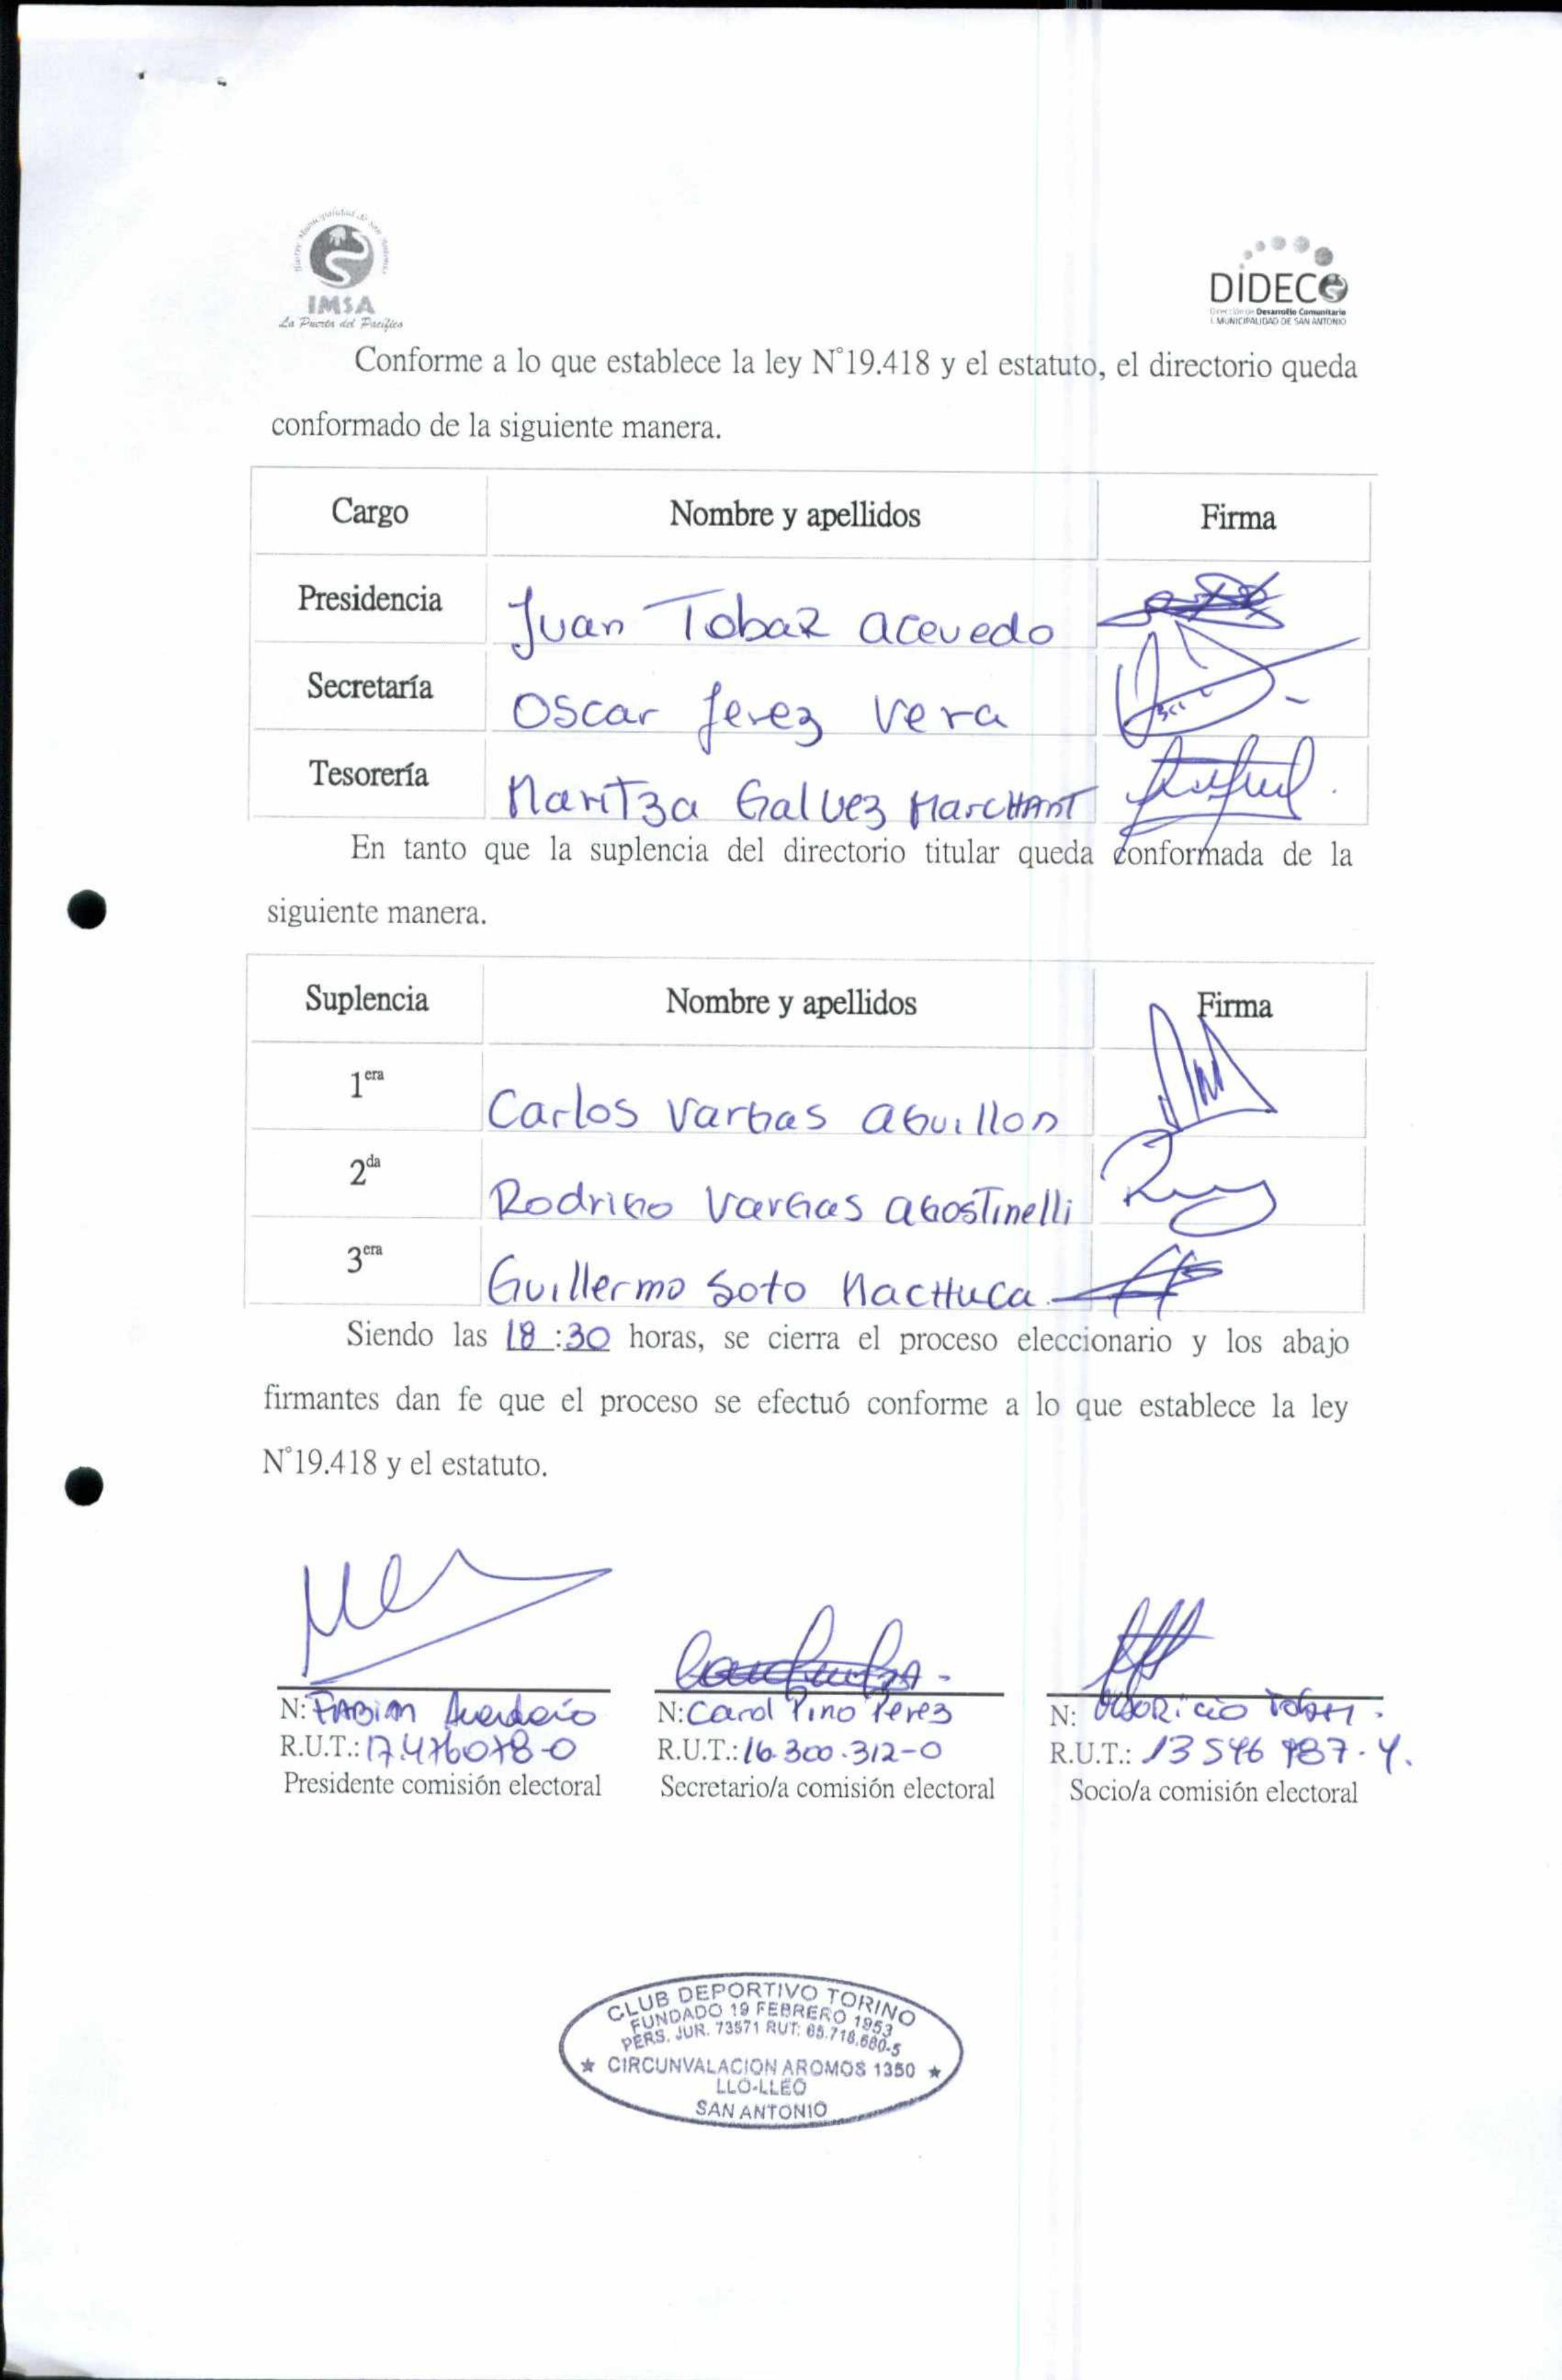 Ilustre Municipalidad de San Antonio
IMSA
La Puerta del Pacífico
DIDECO
Dirección de Desarrollo Comunitario
I. MUNICIPALIDAD DE SAN ANTONIO
Conforme a lo que establece la ley N°19.418 y el estatuto, el directorio queda
conformado de la siguiente manera.
Cargo Nombre y apellidos Firma
Presidencia Juan Tobar Acevedo
Secretaría Oscar Jerez Vera
Tesorería Maritza Galvez MarcHAnT
En tanto que la suplencia del directorio titular queda conformada de la
siguiente manera.
Suplencia Nombre y apellidos Firma
1era Carlos Vargas AGuillon
2da Rodrigo VarGas AGosTinelli
3era Guillermo Soto MacHuca
Siendo las 18:30 horas, se cierra el proceso eleccionario y los abajo
firmantes dan fe que el proceso se efectuó conforme a lo que establece la ley
N°19.418 y el estatuto.
N: FABIAN N: Carol Pino Perez N:
R.U.T.: 17.476078-0 R.U.T.: 16.300.312-0 R.U.T.: 13 546 987-4.
Presidente comisión electoral Secretario/a comisión electoral Socio/a comisión electoral
CLUB DEPORTIVO TORINO
FUNDADO 19 FEBRERO 1953
PERS. JUR. 73571 RUT: 65.718.680-5
★ CIRCUNVALACION AROMOS 1350 ★
LLO-LLEO
SAN ANTONIO